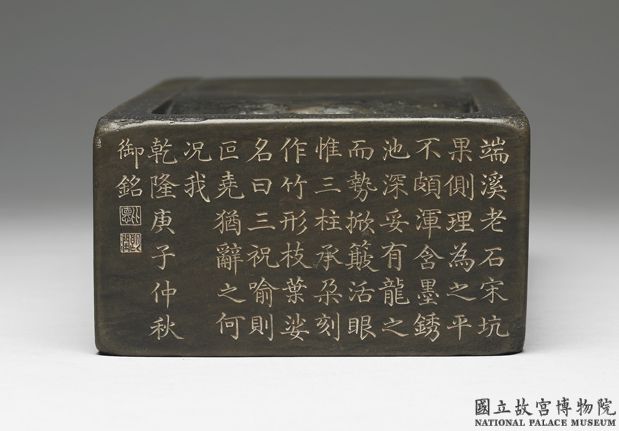 端溪老石宋坑
果側理為之平
不頗渾含墨銹
池深妥有龍之
而勢掀簸活眼
惟三柱承朶刻
作竹形枝葉娑
名曰三祝喻則
叵堯猶辭之何
況我
乾隆庚子仲秋
御銘
國立故宮博物院
NATIONAL PALACE MUSEUM